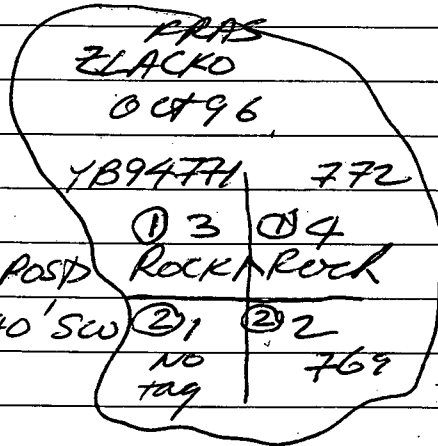 KRAS
ZLACKO
OCT 96
YB94771 772
① 3 ① 4
POST Rock Rock
40' SW ② 1 ② 2
No 769
tag